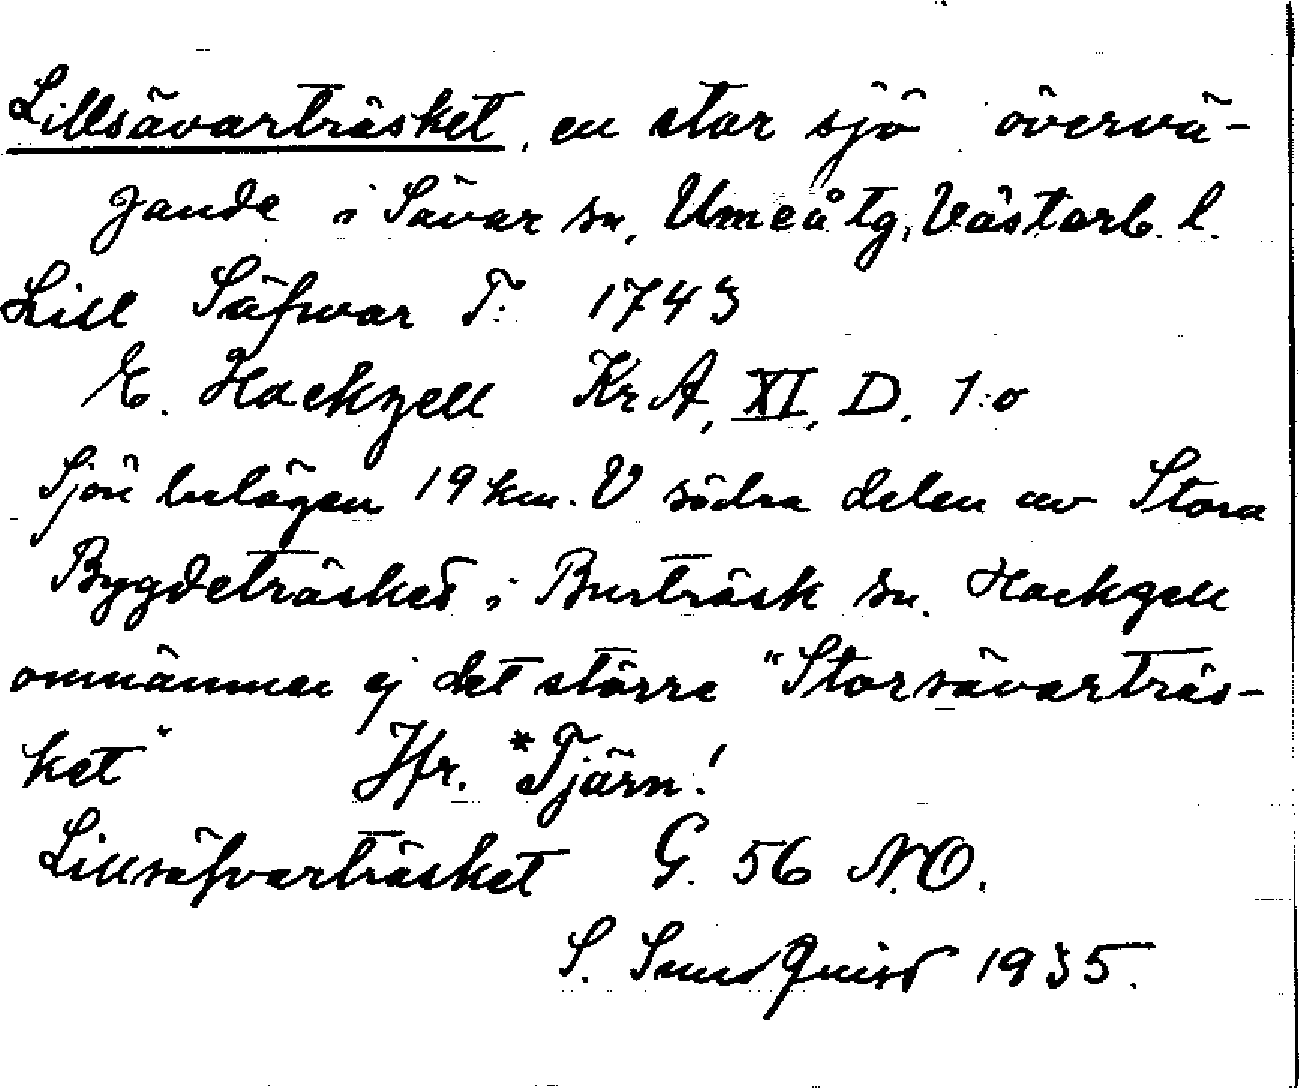 Lillsävarträsket, en stor sjö övervä-
gande i Sävar sn, Umeå tg, Västerb. l.
Lill Säfwar T: 1743
E. Hackzell KrA, XI, D. 1:o
Sjön belägen 19 km. V södra delen av Stora
Bygdeträsket i Burträsk sn. Hackzell
omnämner ej det större "Storsävarträs-
ket" Jfr. *Tjärn!
Lillsäfvarträsket G. 56 N.O.
S. Sundquist 1935.